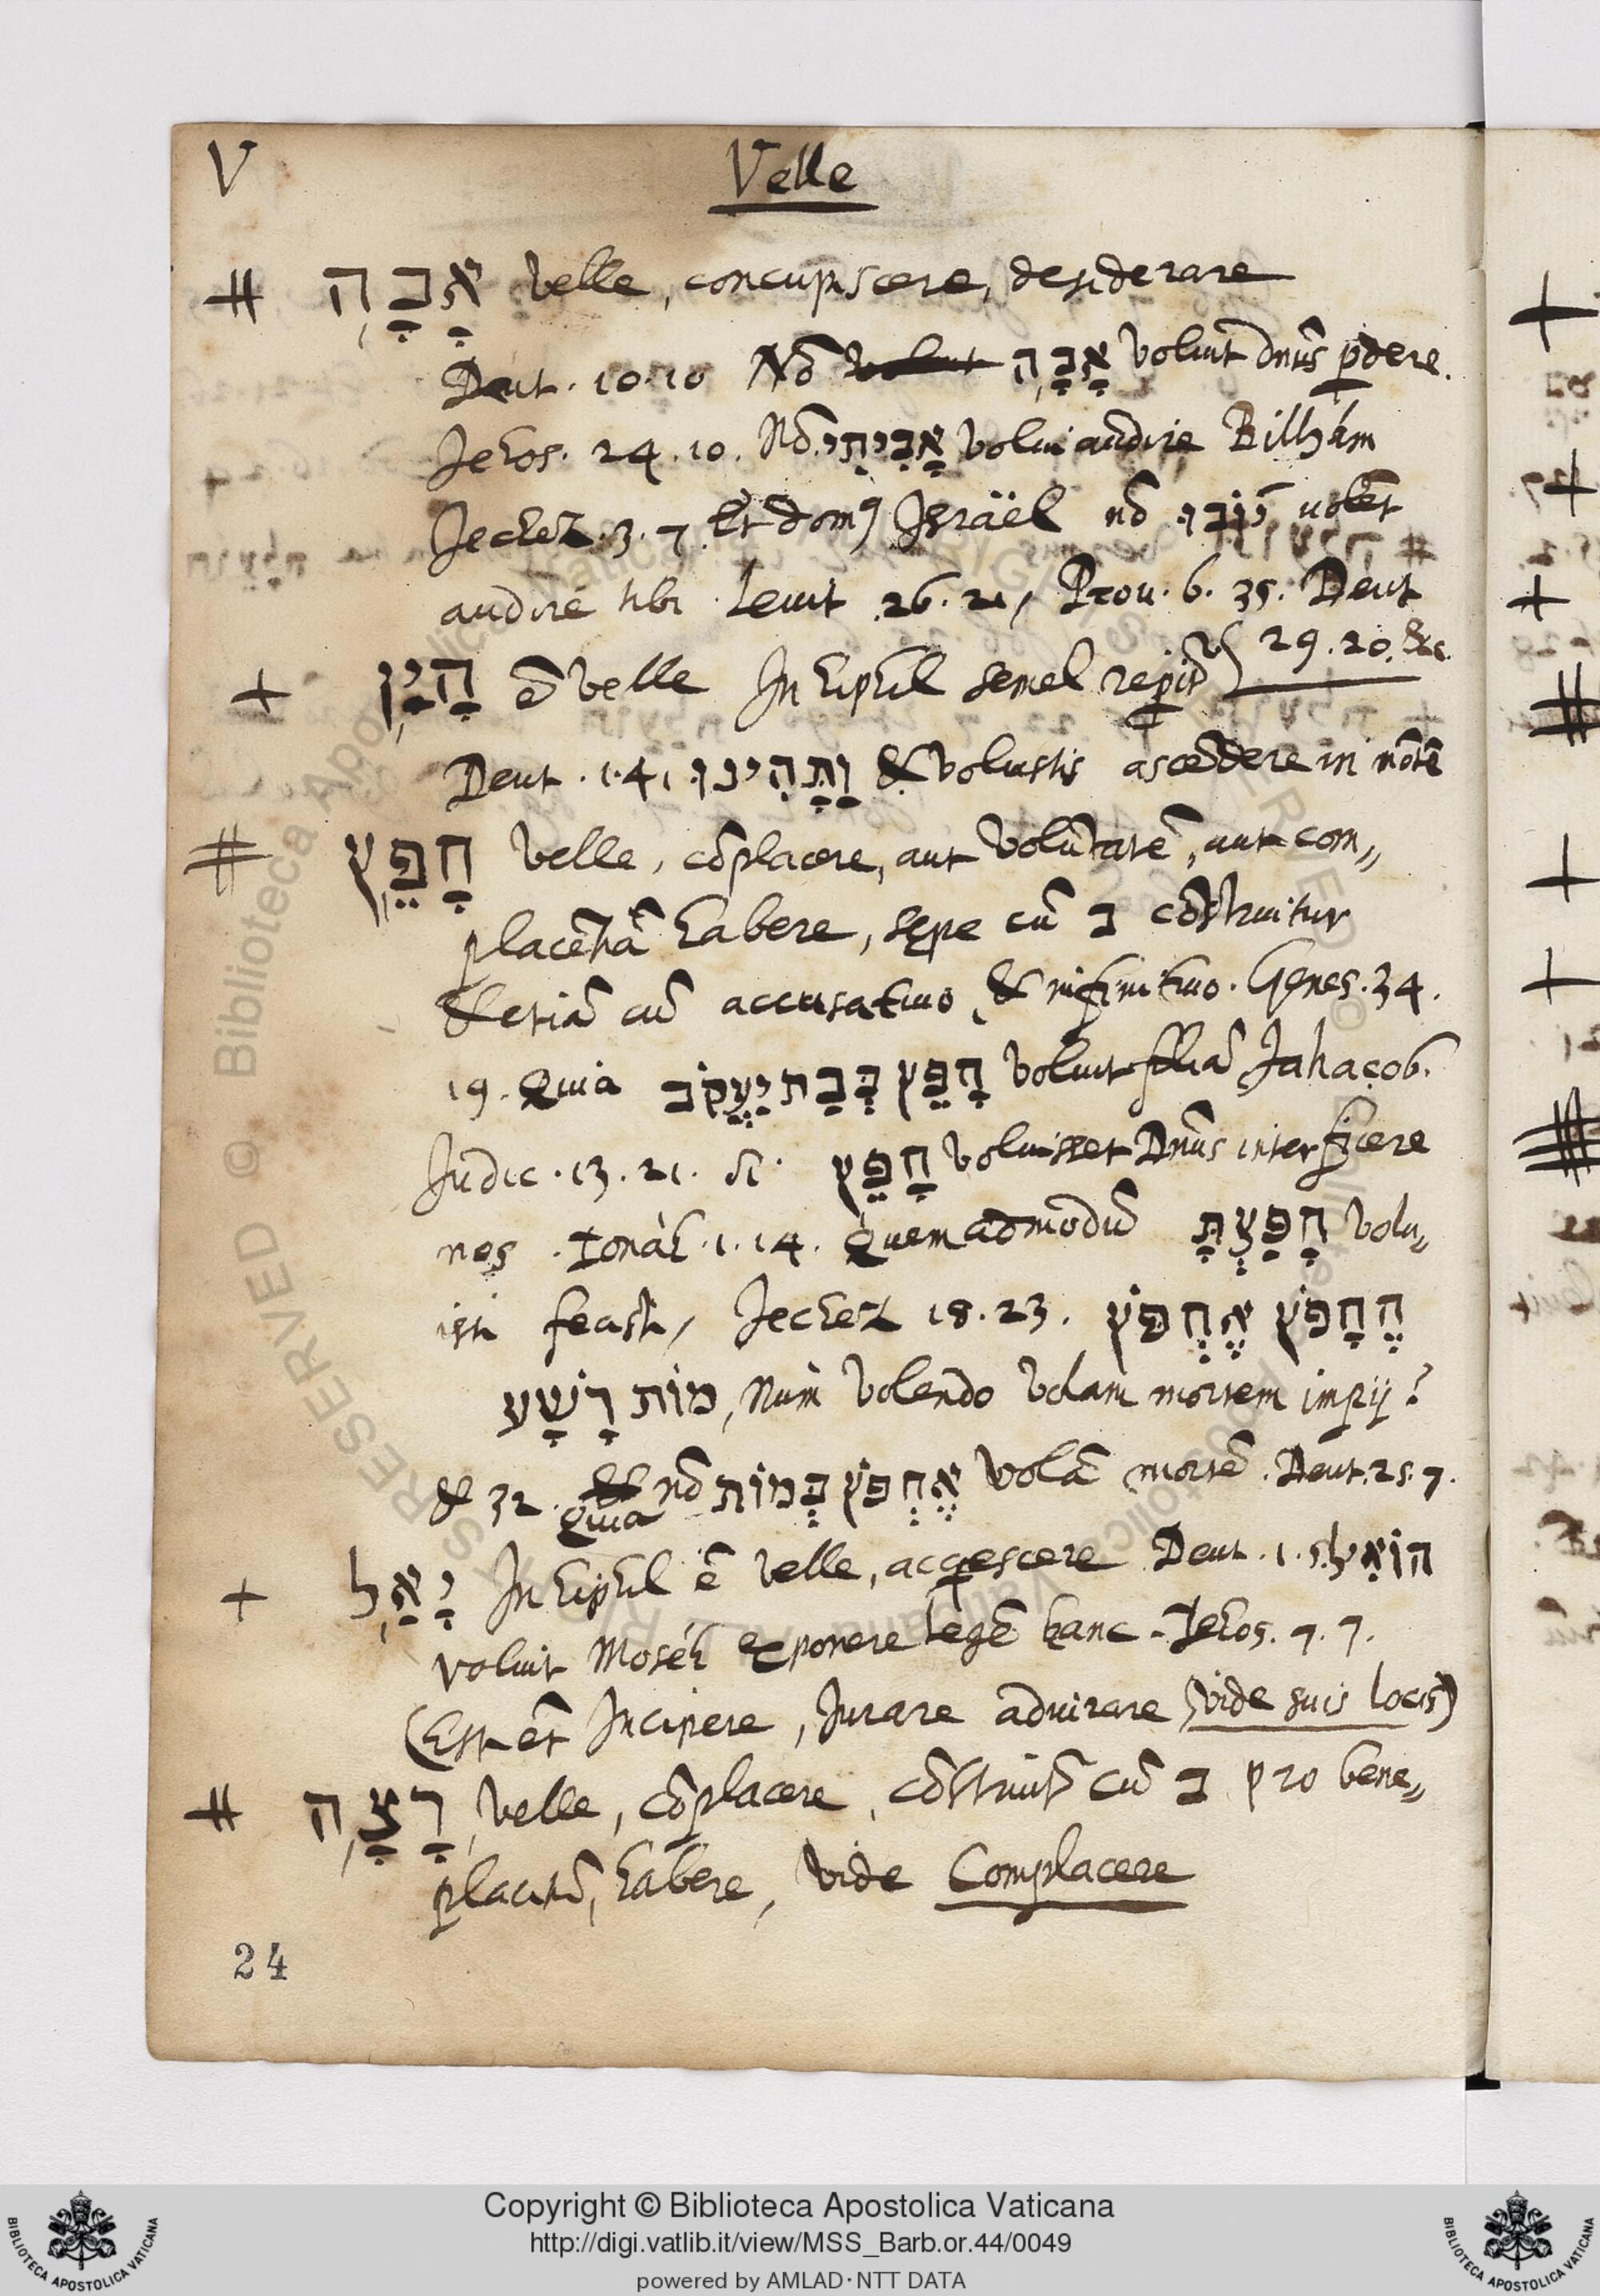 V Velle
# אָבָה velle, concupiscere, desiderare
Deut. 10.10 Nō volut אָבָה voluit dnūs ꝑdere.
Jehos. 24.10. Nō אָבִיתִי volui audire Bilhám
Jechez. 3.7. Et domꝰ Jsräel nō יֹובוּ volēt
audire tibi. Levit. 26.21, Prov. 6.35. Deut
29.20. &c.
+ הָיַן ē velle In hiphil semel reꝑit͂
Deut. 1.41 וַתָּהִינוּ & voluistis ascēdere in mōtē
# חָפֵץ velle, cōplacere, aut volūtatē, aut com„
placētiā habere, sępe cū ב cōstruitur
& etiā cū accusativo, & infinitivo. Genes. 34.
19. Quia חָפֵץ בְּבַת יַעֲקֹב voluit filiā Jahacob.
Judic. 13.21. si חָפֵץ voluisset Dnūs interficere
nos. Jonàh. 1.14. Quemadmodū חָפַצְתָּ volu„
isti fecisti, Jechez 18.23. הֶחָפֹץ אֶחְפֹּץ
מוֹת רָשָׁע, Num volendo volam mortem impij?
& 32. Quia nō אֶחְפֹּץ בְּמוֹת volā mortē. Deut. 25.7.
+ יָאַל In hiphil ē velle, acqescere Deut. 1.5. הוֹאִיל
voluit Moséh exponere legē hanc. Jehos. 7.7.
(Est ēt Incipere, Jurare admirare vide suis locis)
# רָצָה, velle, cōplacere, cōstruit͂ cū ב pro bene„
placitū, habere, vide Complacere
24
© Biblioteca Apostolica Vaticana
Copyright © Biblioteca Apostolica Vaticana
http://digi.vatlib.it/view/MSS_Barb.or.44/0049
powered by AMLAD·NTT DATA
BIBLIOTECA APOSTOLICA VATICANA
BIBLIOTECA APOSTOLICA VATICANA